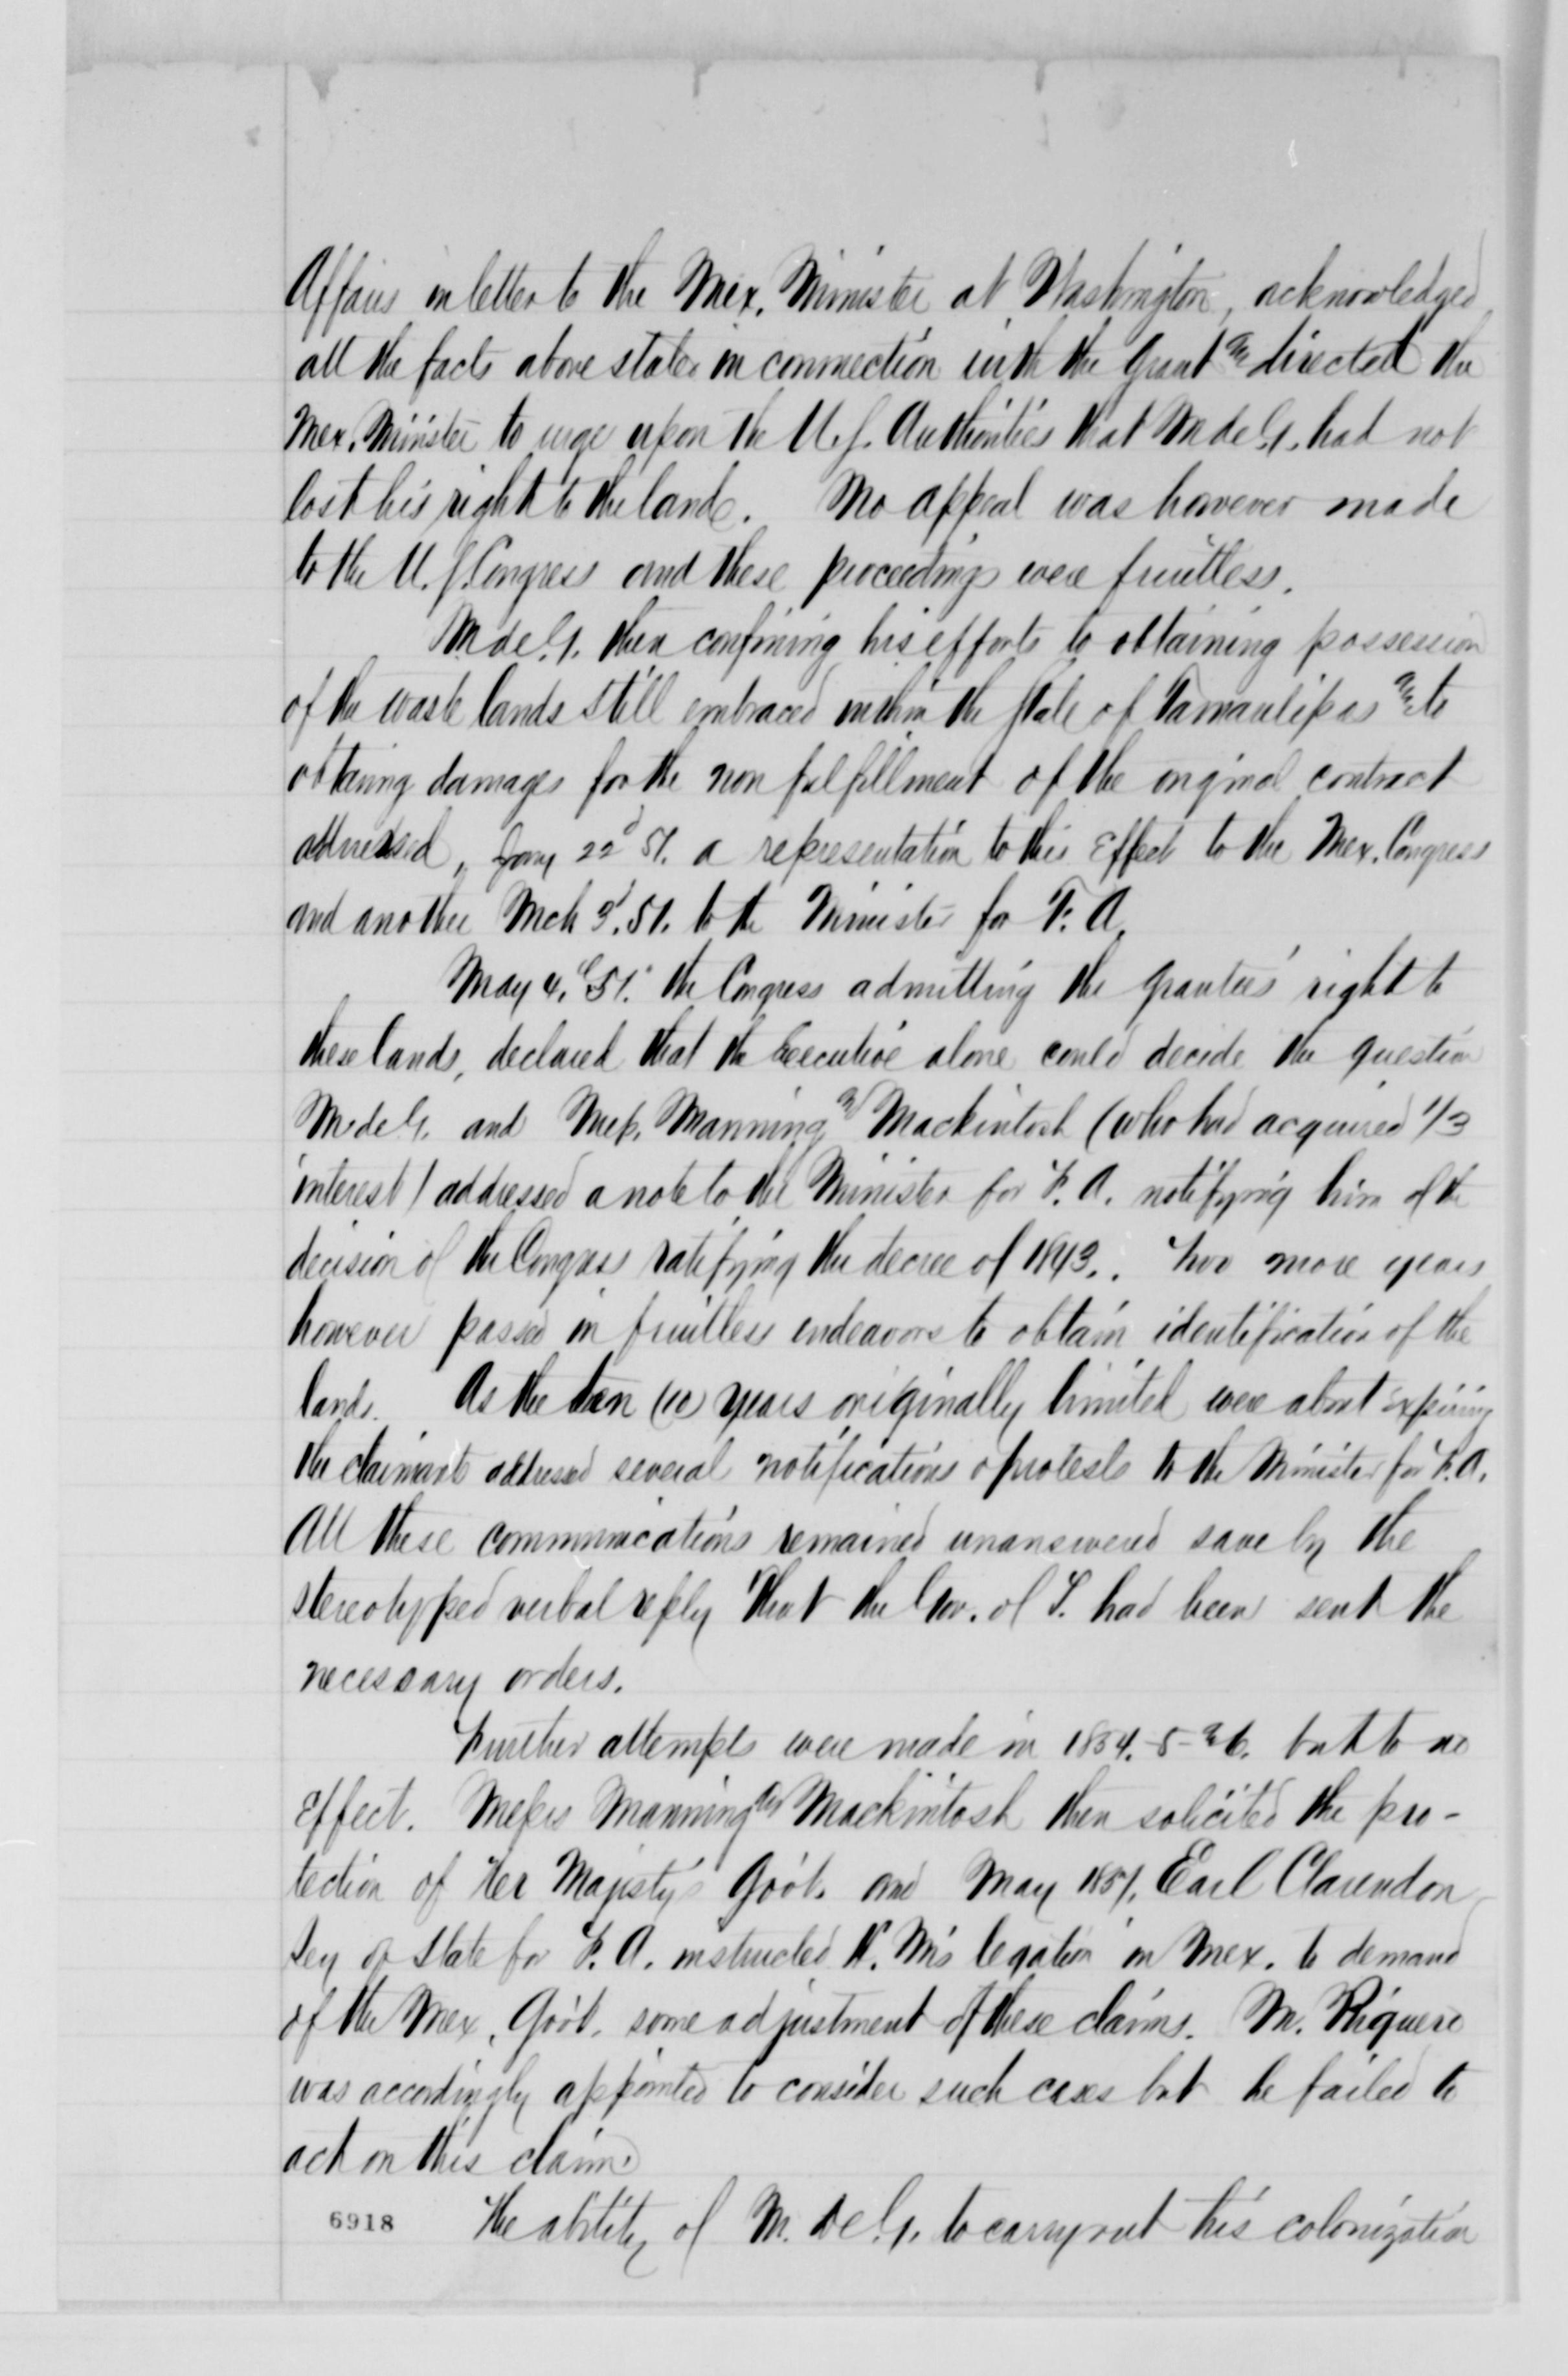 Affairs in letter to the Mex. Minister at Washington, acknowledged
all the facts above stated in connection with the Grant & directed the
Mex. Minister to urge upon the U.S. Authorities that M de G. had not
lost his right to the land. No appeal was however made
to the U.S. Congress and these proceedings were fruitless.
M de G. then confining his efforts to obtaining possession
of the waste lands still embraced within the State of Tamaulipas & to
obtaining damages for the non fulfillment of the original contract
addressed, Jany 22d 51. a representation to this Effect to the Mex. Congress
and another Mch 3d. 51. to the Minister for F. A.
May 4. 51. the Congress admitting the grantees' right to
these lands, declared that the Executive alone could decide the question
M de G. and Mess. Manning & Mackintosh (who had acquired 1/3
interest) addressed a note to the Minister for F. A. notifying him of the
decision of the Congress ratifying the decree of 1843. Two more years
however passed in fruitless endeavors to obtain identification of the
lands. As the ten (10) years originally limited were about expiring
the claimants addressed several notifications & protests to the Minister for F. A.
All these communications remained unanswered save by the
stereotyped verbal reply "that the Gov. of T. had been sent the
necessary orders.
Further attempts were made in 1854.-5-&6. but to no
Effect. Messrs Manning & Mackintosh then solicited the pro-
tection of Her Majesty's Gov't. and May 1857. Earl Clarendon
Secy of State for F. A. instructed H. M's legation in Mex. to demand
of the Mex. Gov't. some adjustment of these claims. M. Riquero
was accordingly appointed to consider such cases but he failed to
act on this claim.
6918 The ability of M. de G. to carry out his colonization